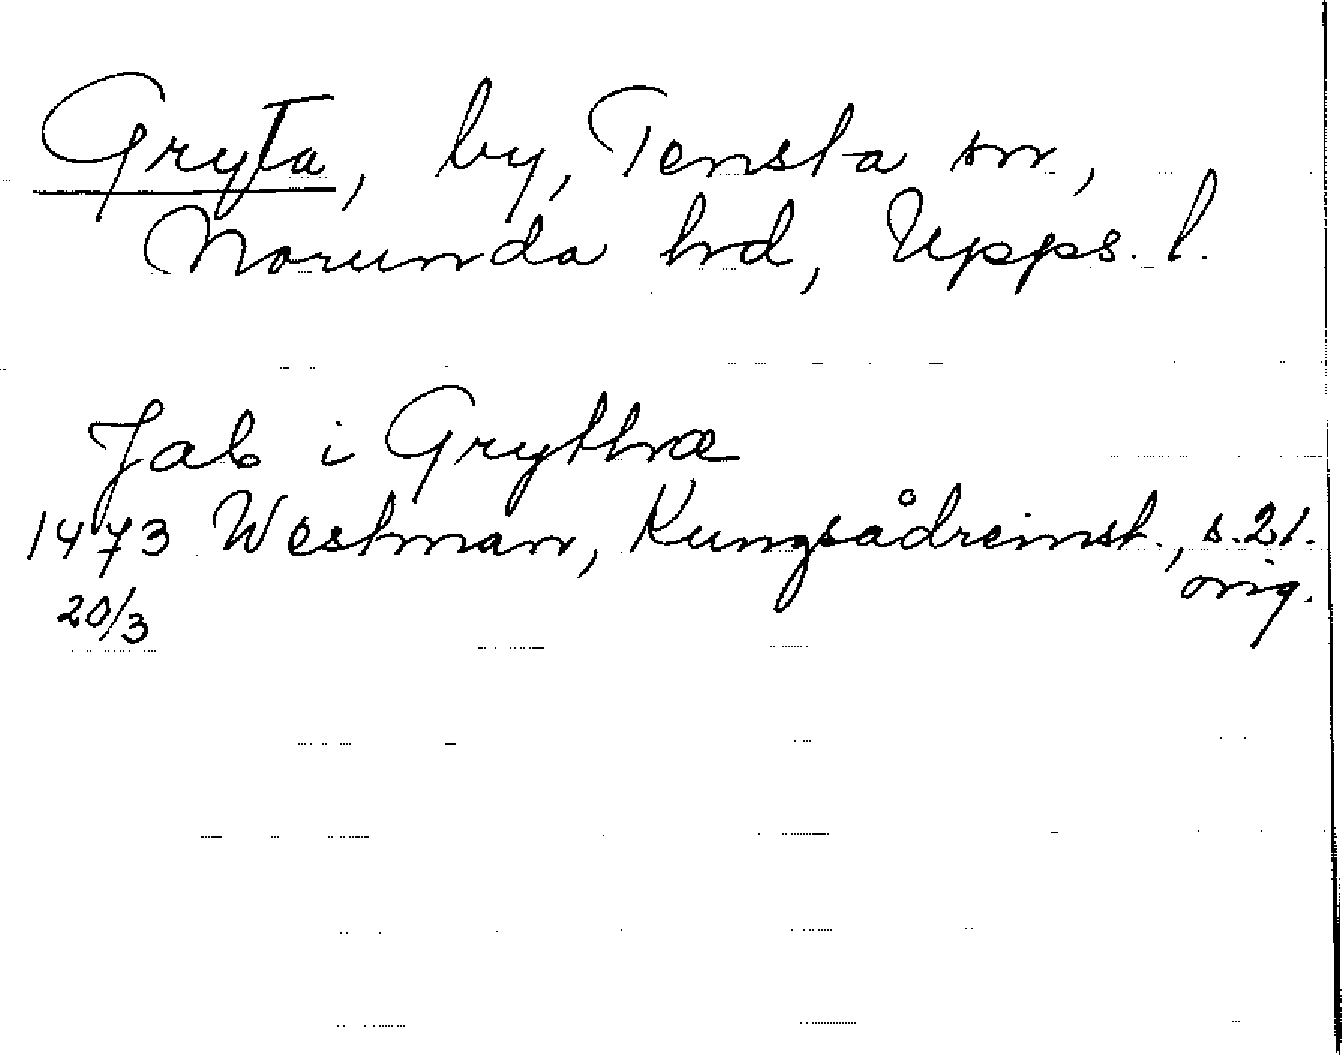 Gryta, by, Tensta sn,
Norunda hd, Upps. l.
Jab i Grythræ
1473 Westman, Kungsådreinst., s. 21.
20/3 orig.